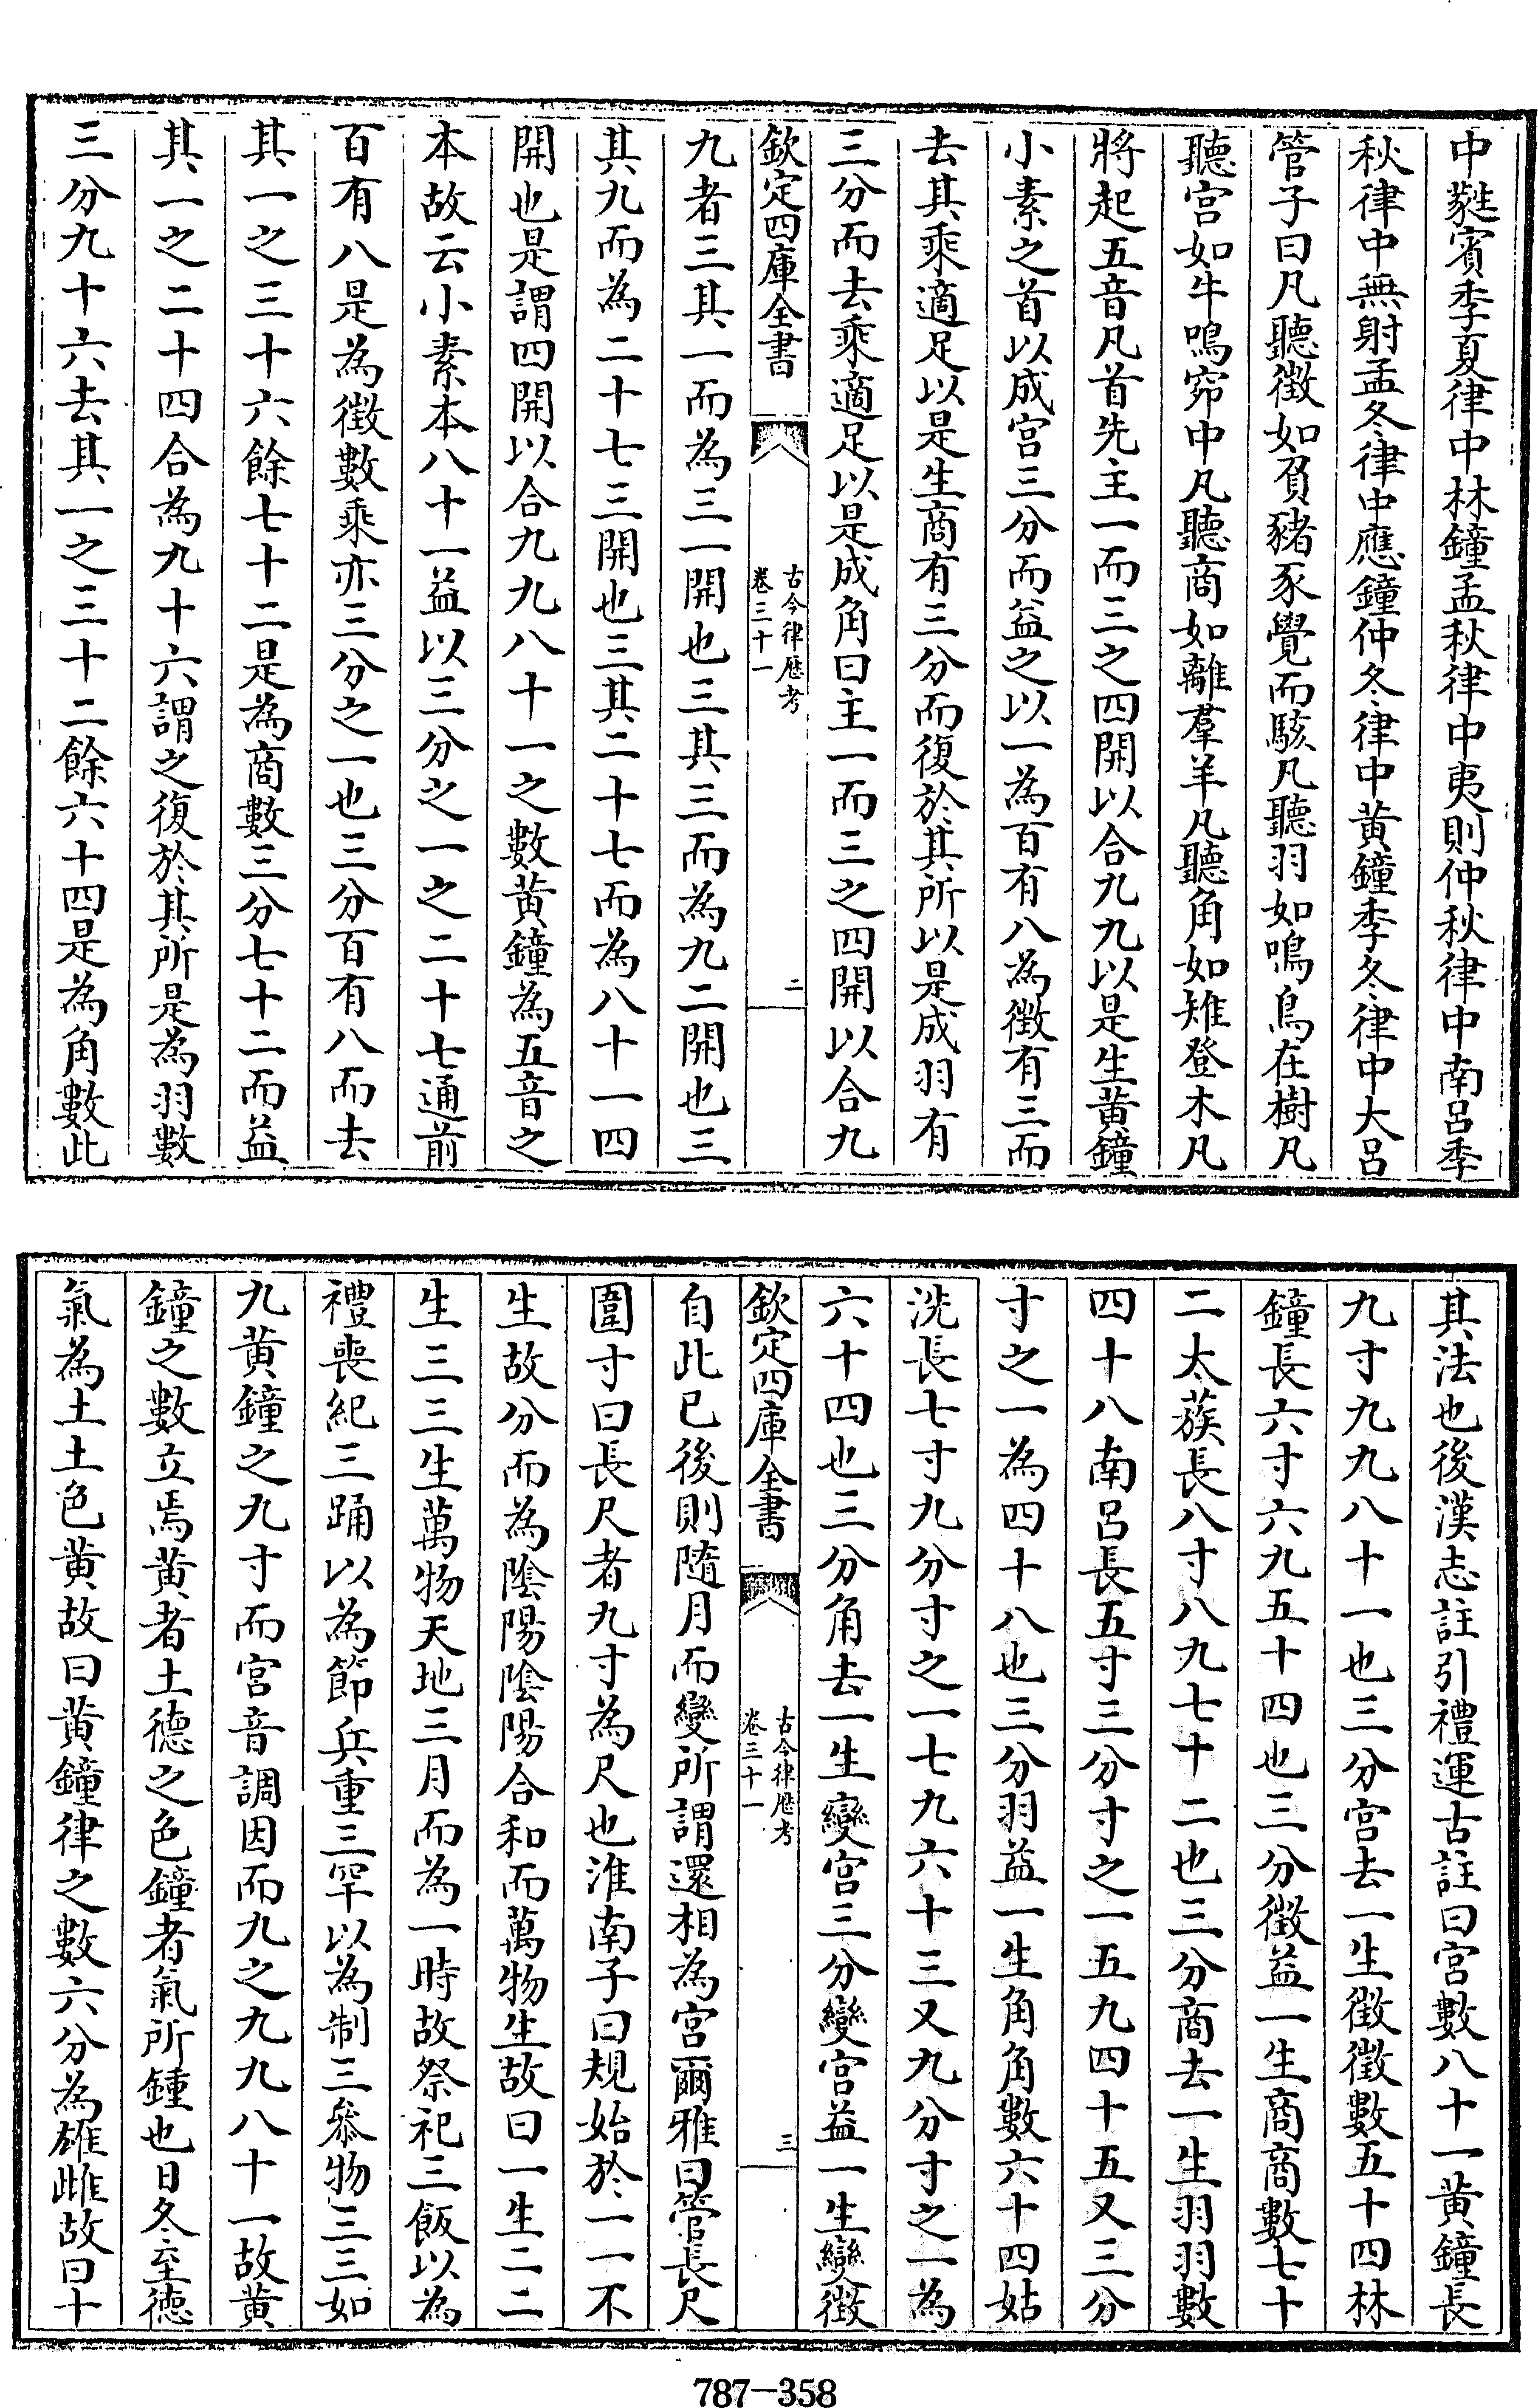 中蕤賓季夏律中林鐘孟秋律中夷則仲秋律中南呂季
秋律中無射孟冬律中應鐘仲冬律中黄鐘季冬律中大呂
管子曰凡聽徵如負豬豕覺而駭凡聽羽如鳴鳥在樹凡
聽宫如牛鳴窌中凡聽商如離羣羊凡聽角如雉登木凡
將起五音凡首先主一而三之四開以合九九以是生黄鐘
小素之首以成宫三分而益之以一為百有八為徵有三而
去其乘適足以是生商有三分而復於其所以是成羽有
三分而去乘適足以是成角曰主一而三之四開以合九
欽定四庫全書
古今律厯考
卷三十一
二
九者三其一而為三一開也三其三而為九二開也三
其九而為二十七三開也三其二十七而為八十一四
開也是謂四開以合九九八十一之數黄鐘為五音之
本故云小素本八十一益以三分之一之二十七通前
百有八是為徵數乘亦三分之一也三分百有八而去
其一之三十六餘七十二是為商數三分七十二而益
其一之二十四合為九十六謂之復於其所是為羽數
三分九十六去其一之三十二餘六十四是為角數此
其法也後漢志註引禮運古註曰宫數八十一黄鐘長
九寸九九八十一也三分宫去一生徵徵數五十四林
鐘長六寸六九五十四也三分徵益一生商商數七十
二太蔟長八寸八九七十二也三分商去一生羽羽數
四十八南呂長五寸三分寸之一五九四十五又三分
寸之一為四十八也三分羽益一生角角數六十四姑
洗長七寸九分寸之一七九六十三又九分寸之一為
六十四也三分角去一生變宫三分變宫益一生變徵
欽定四庫全書
古今律厯考
卷三十一
三
自此已後則隨月而變所謂還相為宫爾雅曰管長尺
圍寸曰長尺者九寸為尺也淮南子曰規始於一一不
生故分而為陰陽陰陽合和而萬物生故曰一生二二
生三三生萬物天地三月而為一時故祭祀三飯以為
禮喪紀三踊以為節兵重三罕以為制三參物三三如
九黄鐘之九寸而宫音調因而九之九九八十一故黄
鐘之數立焉黄者土德之色鐘者氣所鍾也日冬至德
氣為土土色黄故曰黄鐘律之數六分為雄雌故曰十
787—358